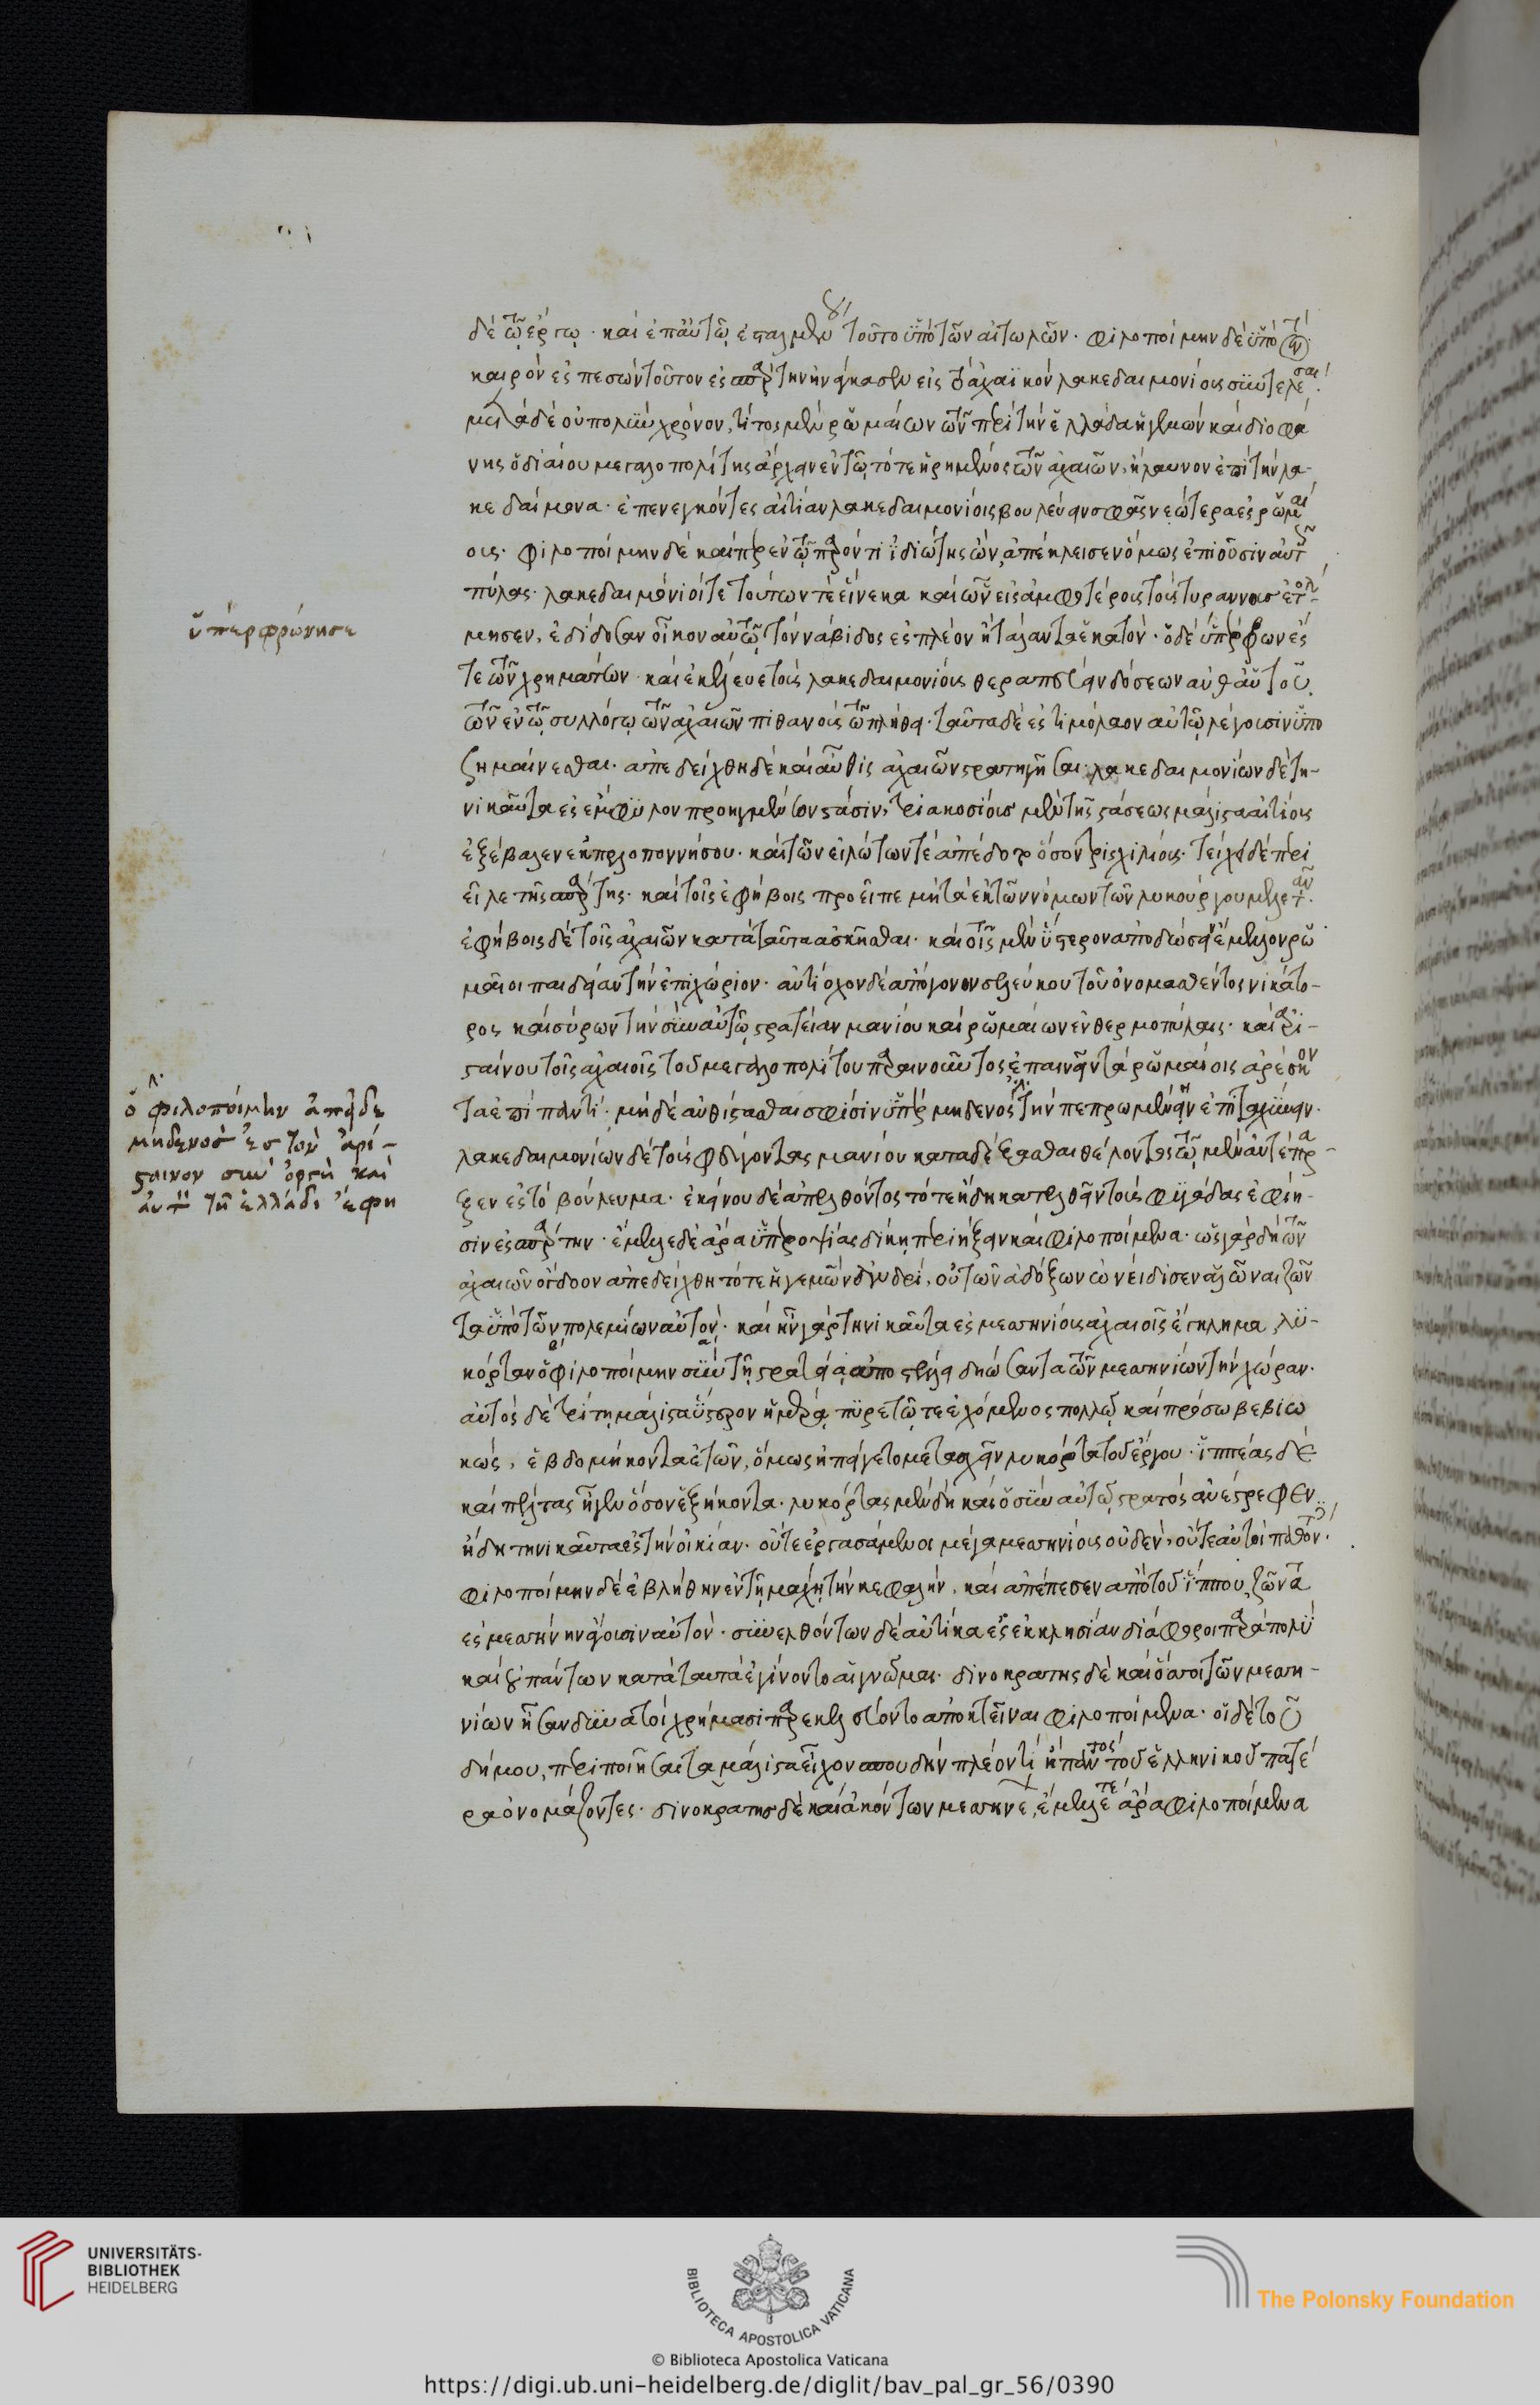 δὲ τῷ ἔργῳ· καὶ ἐπ' αὐτῷ ἐσταλμένου τοῦτο ὑπὸ τῶν αἰτωλῶν· φιλοποίμην δὲ ὑπὸ τὸν
καιρὸν ἐσπεσὼν τοῦτον ἐς σπάρτην ἠνάγκασεν εἰς τὸ ἀχαϊκὸν λακεδαιμονίοις συντελέσαι·
μετὰ δὲ οὐ πολὺν χρόνον, τίτος μὲν ῥωμαίων τῶν περὶ τὴν ἑλλάδα ἡγεμὼν καὶ διοφά
νης ὁ διαίου μεγαλοπολίτης ἄρχειν ἐν τῷ τότε ᾑρημένος τῶν ἀχαιῶν, ἤλαυνον ἐπὶ τὴν λα-
κεδαίμονα· ἐπενεγκόντες αἰτίαν λακεδαιμονίοις βουλεύειν σφᾶς νεώτερα ἐς ῥωμαί
οις· φιλοποίμην δὲ καίπερ ἐν τῷ παρόντι ἰδιώτης ὤν, ἀπέκλεισεν ὅμως ἐπιοῦσιν αὐτοῖς
πύλας· λακεδαιμόνιοί τε τούτων τε εἵνεκα καὶ ὧν εἰς ἀμφοτέροις τοῖς τυράννοις ἐτόλ-
μησεν, ἐδίδοσαν οἶκον αὐτῷ τὸν νάβιδος ἐς πλέον ἢ τάλαντα ἑκατόν· ὁ δὲ ὑπερεφρόνησέ
τε τῶν χρημάτων· καὶ ἐκέλευε τοὺς λακεδαιμονίους θεραπεύειν δόσεων ἀνθ' αὑτοῦ
τῶν ἐν τῷ συλλόγῳ τῶν ἀχαιῶν πιθανοὺς τῷ πλήθει· ταῦτα δὲ ἐς τιμόλαον αὐτῷ λέγουσιν ὑπο
σημαίνεσθαι· ἀπεδείχθη δὲ καὶ αὖθις ἀχαιῶν στρατηγῆσαι· λακεδαιμονίων δὲ τη-
νικαῦτα ἐς ἐμφύλιον προηγμένων στάσιν, τριακοσίους μὲν τῆς στάσεως μάλιστα αἰτίους
ἐξέβαλεν ἐκ πελοποννήσου· καὶ τῶν εἱλώτων τε ἀπέδοτο ὅσον τρισχιλίους· τείχη δὲ περι
εῖλε τῆς σπάρτης· καὶ τοῖς ἐφήβοις προεῖπε μὴ τὰ ἐκ τῶν νόμων τῶν λυκούργου μελετᾶν·
ἐφήβοις δὲ τοῖς ἀχαιῶν κατὰ ταῦτα ἀσκῆσθαι· καὶ τοῖς μὲν ὕστερον ἀποδώσειν ἔμελλον ῥω
μαῖοι παιδείαν τὴν ἐπιχώριον· ἀντίοχον δὲ ἀπόγονον σελεύκου τοῦ ὀνομασθέντος νικάτο-
ρος καὶ σύρων τὴν σὺν αὐτῷ στρατείαν μανίου καὶ ῥωμαίων ἐν θερμοπύλαις· καὶ ἀρι-
σταίνου τοῖς ἀχαιοῖς τοῦ μεγαλοπολίτου παραινοῦντος ἐπαινεῖν τὰ ῥωμαίοις ἀρέσκον
τα ἐπὶ παντί· μηδὲ ἀνθίστασθαι σφίσιν ὑπὲρ μηδενός τὴν πεπρωμένην ἐπιταχύνειν·
λακεδαιμονίων δὲ τοὺς φεύγοντας μανίου καταδέξασθαι θέλοντος τῷ μὲν ἀντέπρα-
ξεν ἐς τὸ βούλευμα· ἐκείνου δὲ ἀπελθόντος τότε ἤδη κατελθεῖν τοὺς φυγάδας ἐφίη-
σιν ἐς σπάρτην· ἔμελλε δὲ ἄρα ὑπεροψίας δίκη περιήξειν καὶ φιλοποίμενα· ὡς γὰρ δὴ τῶν
ἀχαιῶν ὄγδοον ἀπεδείχθη τότε ἡγεμὼν ἀνδρὶ, οὐ τῶν ἀδόξων ὠνείδισεν ἁλῶναι ζῶν
τα ὑπὸ τῶν πολεμίων αὐτόν· καὶ ἦν γὰρ τηνικαῦτα ἐς μεσσηνίους ἀχαιοῖς ἔγκλημα, λυ-
κόρταν ὁ φιλοποίμην σὺν τῇ στρατιᾷ ἀποστέλλει δῃώσαντα τῶν μεσσηνίων τὴν χώραν·
αὐτὸς δὲ τρίτῃ μάλιστα ὕστερον ἡμέρᾳ πυρετῷ τε ἐχόμενος πολλῷ καὶ πρόσω βεβιω
κώς, ἑβδομήκοντα ἐτῶν, ὅμως ἠπείγετο μετασχεῖν λυκόρτᾳ τοῦ ἔργου· ἱππέας δὲ
καὶ πελταστὰς ἦγεν ὅσον ἑξήκοντα· λυκόρτας μὲν δὴ καὶ ὁ σὺν αὐτῷ στρατὸς ἀνέστρεφεν
ἤδη τηνικαῦτα ἐς τὴν οἰκίαν· οὔτε ἐργασάμενοι μέγα μεσσηνίους οὐδέν, οὔτε αὐτοὶ παθόντες·
φιλοποίμην δὲ ἐβλήθην ἐν τῇ μάχῃ τὴν κεφαλήν, καὶ ἀπέπεσεν ἀπὸ τοῦ ἵππου, ζῶντα
ἐς μεσσήνην ἄγουσιν αὐτόν· συνελθόντων δὲ αὐτίκα ἐς ἐκκλησίαν διάφοροι παρὰ πολὺ
καὶ οὐ πάντων κατὰ ταυτὰ ἐγίνοντο αἱ γνῶμαι· δινοκράτης δὲ καὶ ὅσοι τῶν μεσση-
νίων ἦσαν δυνατοὶ χρήμασι παρεκελεύοντο ἀποκτεῖναι φιλοποίμενα· οἱ δὲ τοῦ
δήμου, περιποιῆσαι τὰ μάλιστα εἶχον σπουδὴν πλέον τι ἢ παντὸς τοῦ ἑλληνικοῦ πατέ
ρα ὀνομάζοντες· δινοκράτης δὲ καὶ ἀκόντων μεσσηνίων, ἔμελλέ τε ἄρα φιλοποίμενα
ὑπερφρόνησε
ὁ φιλοποίμην ἀπῄδε
μηδενὸς ἐς τὸν ἀρί-
σταινον σὺν ὀργῇ καὶ
αὐτὴν τῇ ἑλλάδι ἔφη
UNIVERSITÄTS-
BIBLIOTHEK
HEIDELBERG
BIBLIOTECA APOSTOLICA VATICANA
The Polonsky Foundation
© Biblioteca Apostolica Vaticana
https://digi.ub.uni-heidelberg.de/diglit/bav_pal_gr_56/0390